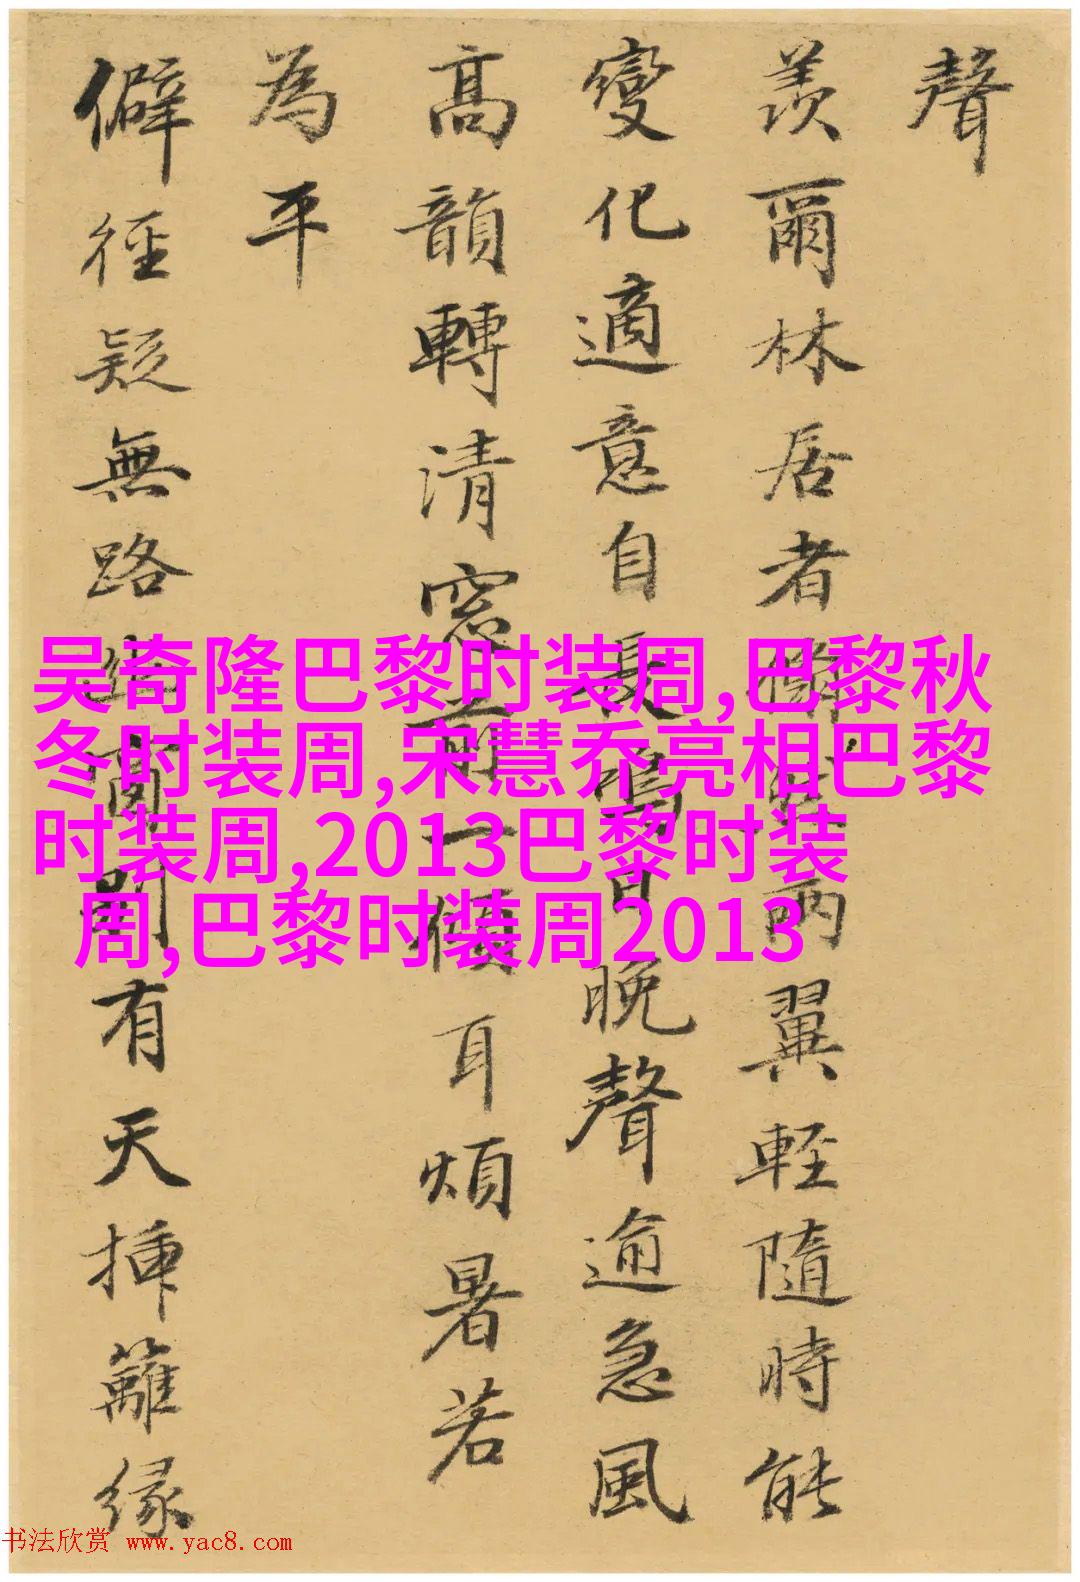 聲
羨爾林居者兩翼輕隨時能
變化適意自長鳴日晚聲逾急風
高韻轉清窓前一傾耳煩暑若
為平
僻徑疑無路有天插籬緣
吴奇隆巴黎时装周,巴黎秋
冬时装周,宋慧乔亮相巴黎
时装周,2013巴黎时装
周,巴黎时装周2013
书法欣赏 www.yac8.com